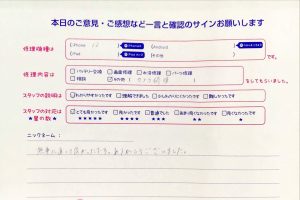 本日のご意見・ご感想など一言と確認のサインお願いします
修理機種は
iPhone 12
iPad
Android
その他
です。
修理内容は
バッテリー交換 画面修理 水没修理 パーツ修理
相談 その他
をしてもらいました。
スタッフの説明は
わかりやすかったです 理解できました 少しわかりにくかったです 難しかったです
スタッフの対応は
★星の数★
とても良かったです 良かったです 普通でした あまり良くなかったです 良くなかったです
★★★★★ ★★★★ ★★★ ★★ ★
ニックネーム：
無事に直って良かったです。ありがとうございました。